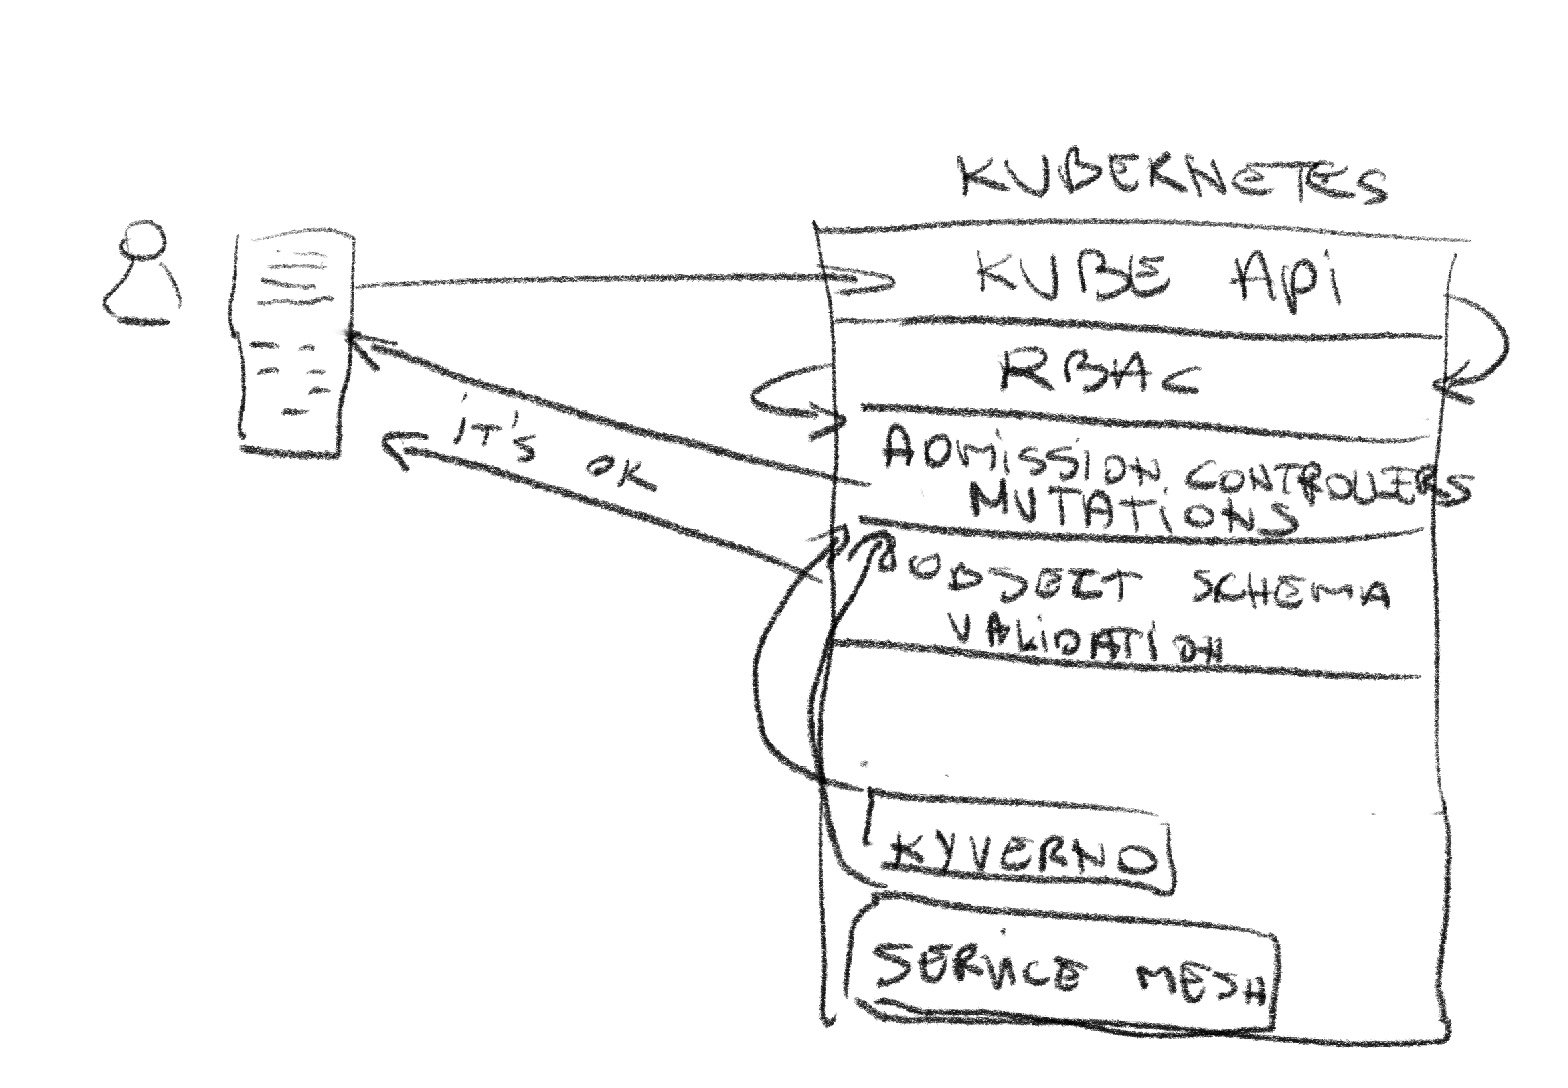 KUBERNETES
KUBE Api
RBAC
ADMISSION CONTROLLERS
MUTATIONS
iT'S OK
OBJECT SCHEMA
VALIDATION
KYVERNO
SERVICE MESH